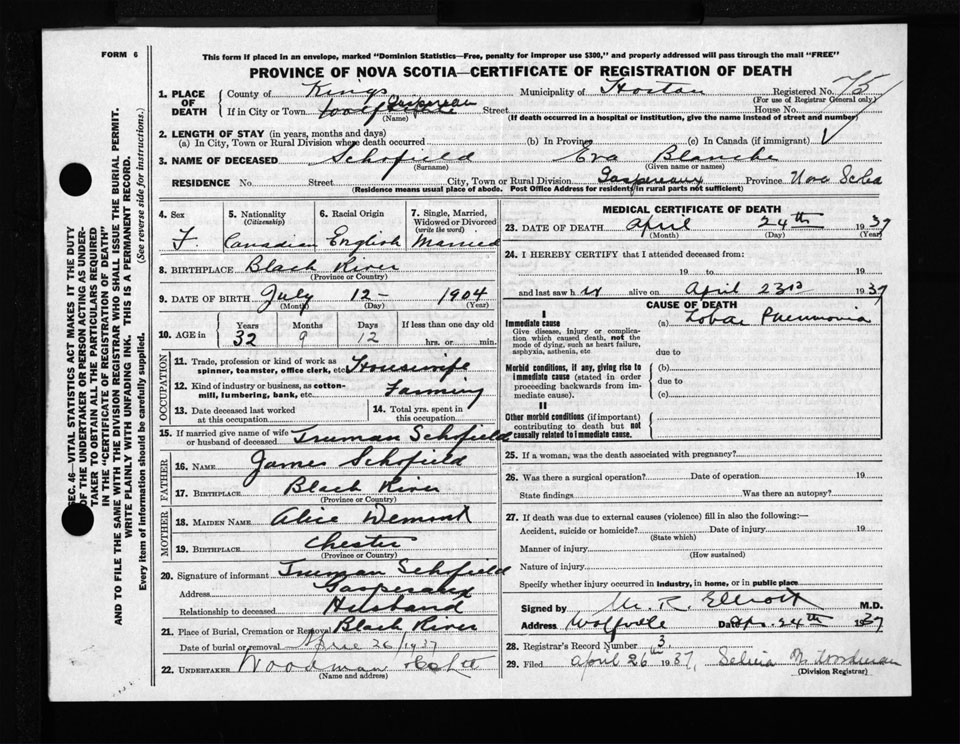 FORM 6
This form if placed in an envelope, marked "Dominion Statistics—Free, penalty for improper use $300," and properly addressed will pass through the mail "FREE"
PROVINCE OF NOVA SCOTIA—CERTIFICATE OF REGISTRATION OF DEATH
SEC. 46—VITAL STATISTICS ACT MAKES IT THE DUTY
OF THE UNDERTAKER OR PERSON ACTING AS UNDER-
TAKER TO OBTAIN ALL THE PARTICULARS REQUIRED
IN THE "CERTIFICATE OF REGISTRATION OF DEATH"
AND TO FILE THE SAME WITH THE DIVISION REGISTRAR WHO SHALL ISSUE THE BURIAL PERMIT.
WRITE PLAINLY WITH UNFADING INK. THIS IS A PERMANENT RECORD.
Every item of information should be carefully supplied. (See reverse side for instructions.)
1. PLACE OF DEATH County of Kings Municipality of Horton Registered No. 75
(For use of Registrar General only)
If in City or Town Street House No.
(Name) (If death occurred in a hospital or institution, give the name instead of street and number)
2. LENGTH OF STAY (in years, months and days)
(a) In City, Town or Rural Division where death occurred (b) In Province (c) In Canada (if immigrant)
3. NAME OF DECEASED Schofield Eva Blanche
(Surname) (Given name or names)
RESIDENCE No. Street City, Town or Rural Division Gaspereaux Province Nova Scotia
(Residence means usual place of abode. Post Office Address for residents in rural parts not sufficient)
4. Sex F.
5. Nationality (Citizenship) Canadian
6. Racial Origin English
7. Single, Married, Widowed or Divorced (write the word) Married
8. BIRTHPLACE Black River
(Province or Country)
9. DATE OF BIRTH July 12 - 1904
(Month) (Day) (Year)
10. AGE in Years Months Days If less than one day old
32 9 12 hrs. or min.
OCCUPATION
11. Trade, profession or kind of work as spinner, teamster, office clerk, etc. Housewife
12. Kind of industry or business, as cotton-mill, lumbering, bank, etc. Farming
13. Date deceased last worked at this occupation
14. Total yrs. spent in this occupation
15. If married give name of wife or husband of deceased Truman Schofield
FATHER
16. NAME James Schofield
17. BIRTHPLACE Black River
(Province or Country)
MOTHER
18. MAIDEN NAME Alice Demont
19. BIRTHPLACE Chester
(Province or Country)
20. Signature of informant Truman Schofield
Address Gaspereaux
Relationship to deceased Husband
21. Place of Burial, Cremation or Removal Black River
Date of burial or removal April 26/1937
22. UNDERTAKER Woodman
(Name and address)
MEDICAL CERTIFICATE OF DEATH
23. DATE OF DEATH April 24th 1937
(Month) (Day) (Year)
24. I HEREBY CERTIFY that I attended deceased from:
19 to 19
and last saw h er alive on April 23rd 1937
CAUSE OF DEATH
I
Immediate cause (a) Lobar Pneumonia
Give disease, injury or complication which caused death, not the mode of dying, such as heart failure, asphyxia, asthenia, etc due to
Morbid conditions, if any, giving rise to immediate cause (stated in order proceeding backwards from immediate cause). (b)
due to
(c)
II
Other morbid conditions (if important) contributing to death but not causally related to immediate cause.
25. If a woman, was the death associated with pregnancy?
26. Was there a surgical operation? Date of operation 19
State findings Was there an autopsy?
27. If death was due to external causes (violence) fill in also the following:—
Accident, suicide or homicide? Date of injury 19
(State which)
Manner of injury
(How sustained)
Nature of injury
Specify whether injury occurred in industry, in home, or in public place
Signed by M. R. Elliott M.D.
Address Wolfville Date Apr. 24th 1937
28. Registrar's Record Number 3
29. Filed April 26th 1937, Woodman
(Division Registrar)